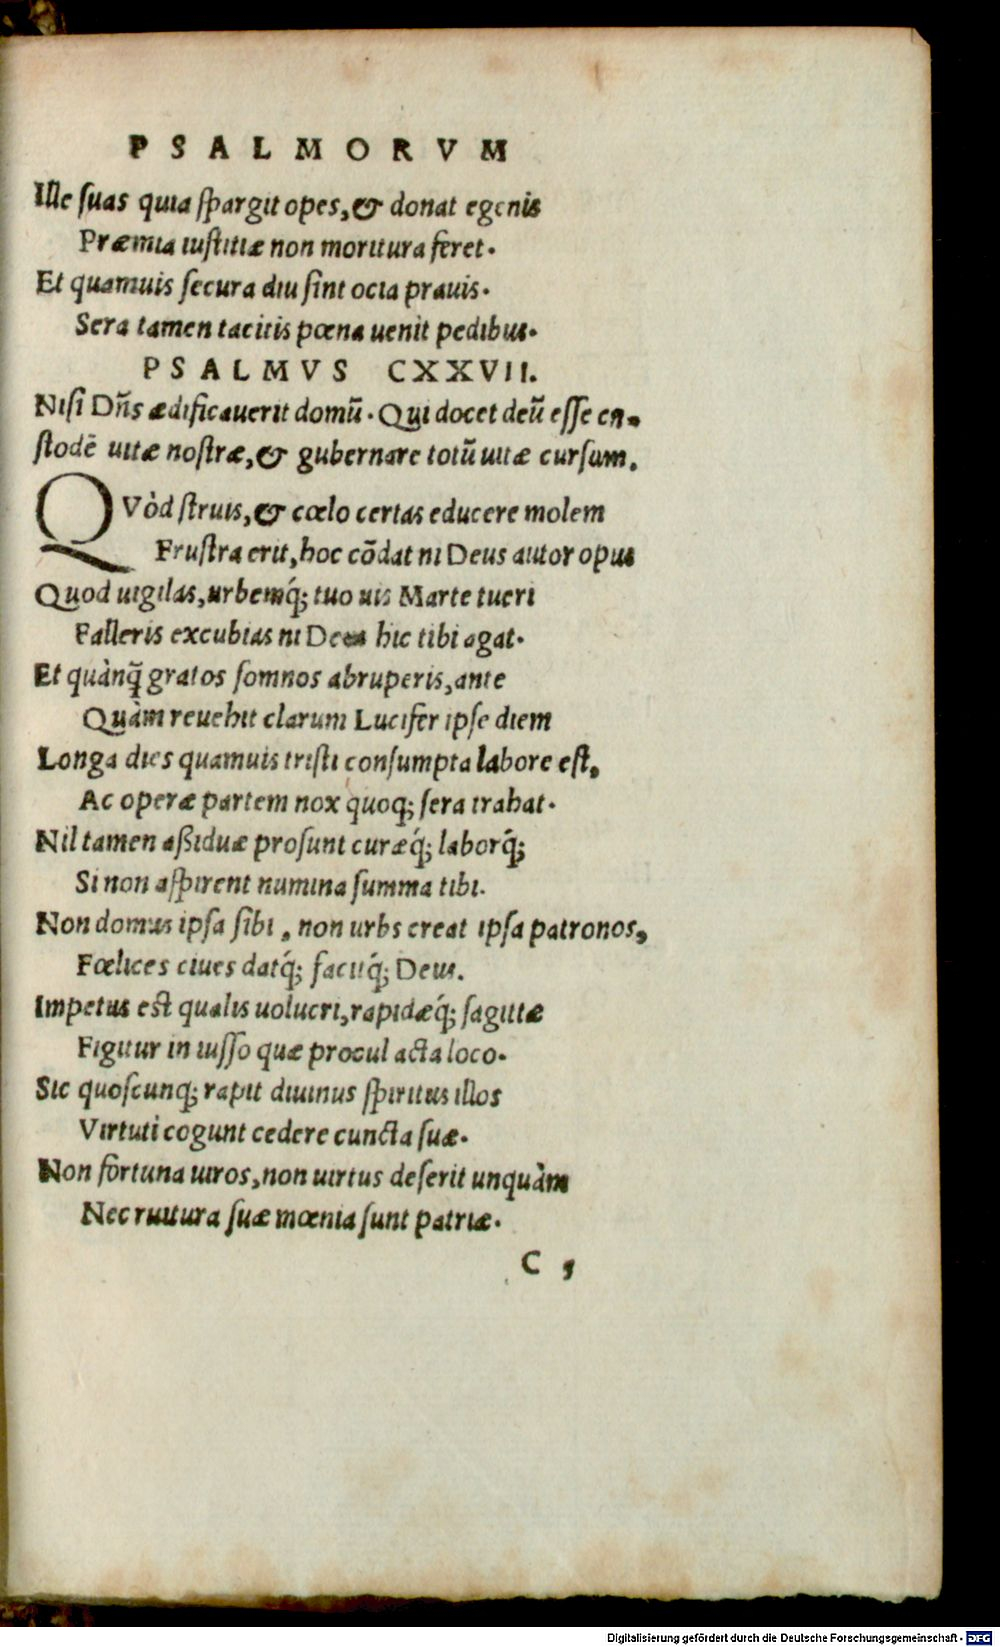 PSALMORVM
Ille suas quia spargit opes, & donat egenis
Præmia iustitiæ non moritura feret.
Et quamuis secura diu sint ocia prauis.
Sera tamen tacitis pœna uenit pedibus.
PSALMVS CXXVII.
Nisi Dñs ædificauerit domū. Qui docet deū esse cu-
stodē uitæ nostræ, & gubernare totū uitæ cursum.
QVòd struis, & cœlo certas educere molem
Frustra erit, hoc cōdat ni Deus autor opus
Quod uigilas, urbemq́; tuo uis Marte tueri
Falleris excubias ni Deus hic tibi agat.
Et quànq̃ gratos somnos abruperis, ante
Quàm reuehit clarum Lucifer ipse diem
Longa dies quamuis tristi consumpta labore est,
Ac operæ partem nox quoq; sera trahat.
Nil tamen aßiduæ prosunt curæq́; laborq́;
Si non aspirent numina summa tibi.
Non domus ipsa sibi, non urbs creat ipsa patronos,
Fœlices ciues datq́; facitq́; Deus.
Impetus est qualis uolucri, rapidæq́; sagittæ
Figitur in iusso quæ procul acta loco.
Sic quoscunq; rapit diuinus spiritus illos
Virtuti cogunt cedere cuncta suæ.
Non fortuna uiros, non uirtus deserit unquàm
Nec ruitura suæ mœnia sunt patriæ.
C ,
Digitalisierung gefördert durch die Deutsche Forschungsgemeinschaft - DFG